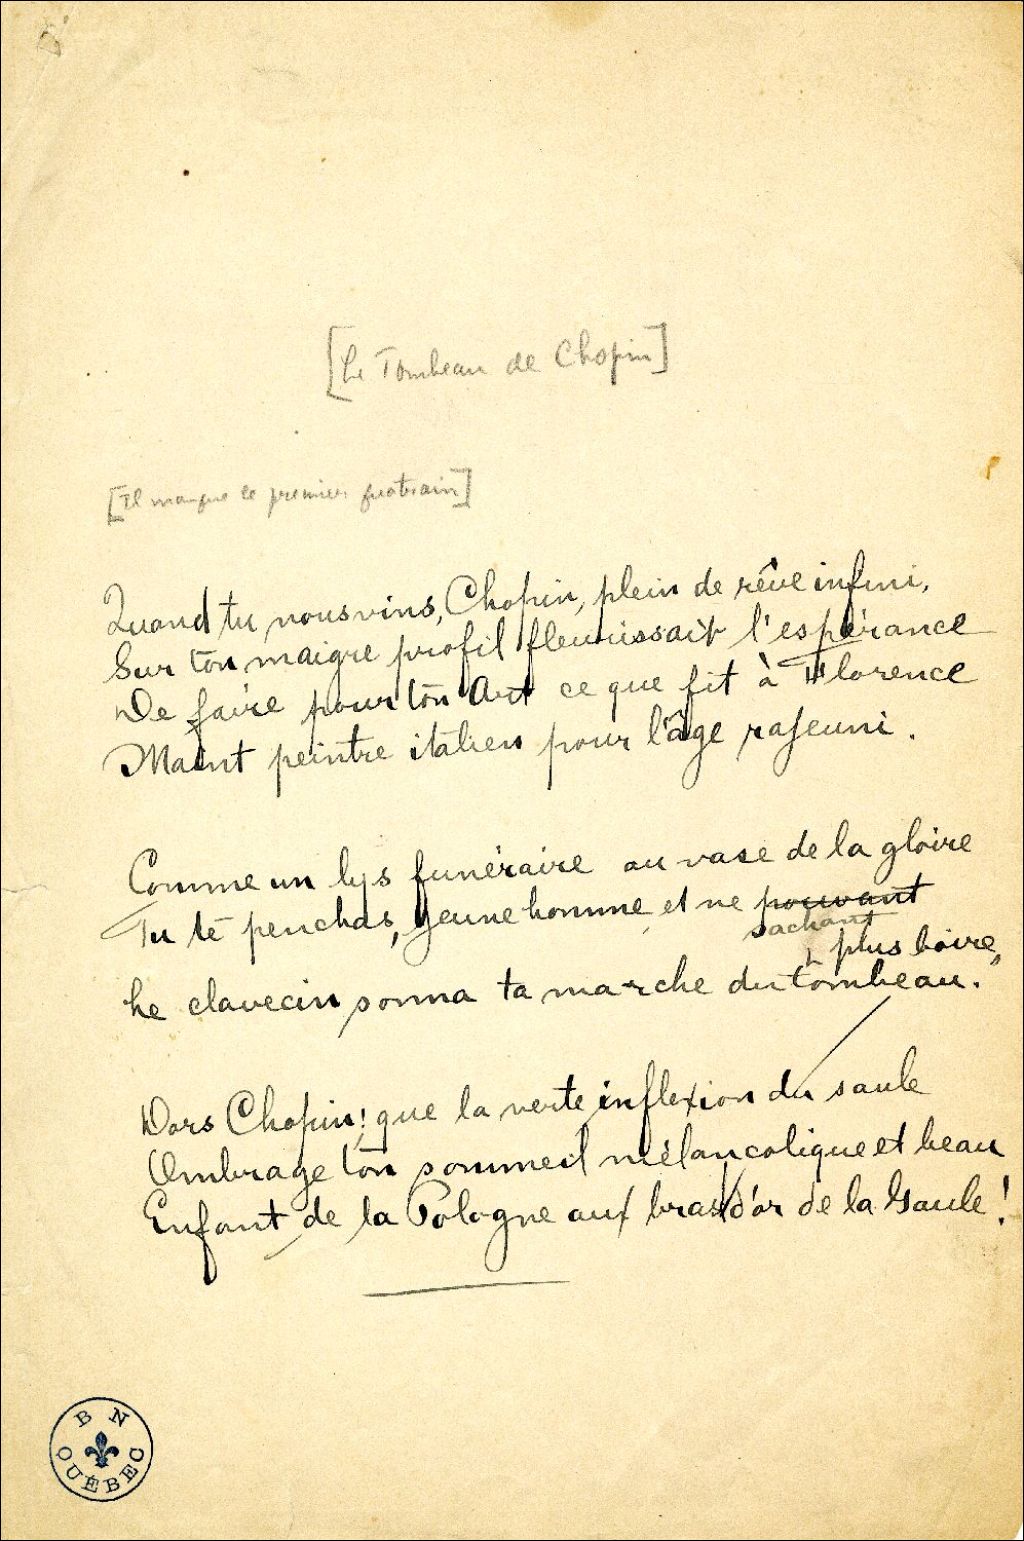 [Le Tombeau de Chopin]
[Il manque le premier quatrain]
Quand tu nous vins, Chopin, plein de rêve infini,
Sur ton maigre profil fleurissait l'espérance
De faire pour ton Art ce que fit à Florence
Maint peintre italien pour l'âge rajeuni.
Comme un lys funéraire au vase de la gloire
Tu te penchas, jeune homme, et ne pouvant
sachant
plus boire,
Le clavecin sonna ta marche du tombeau.
Dors Chopin! que la verte inflexion du saule
Ombrage ton sommeil mélancolique et beau
Enfant de la Pologne aux bras d'or de la Gaule!
B N
QUÉBEC